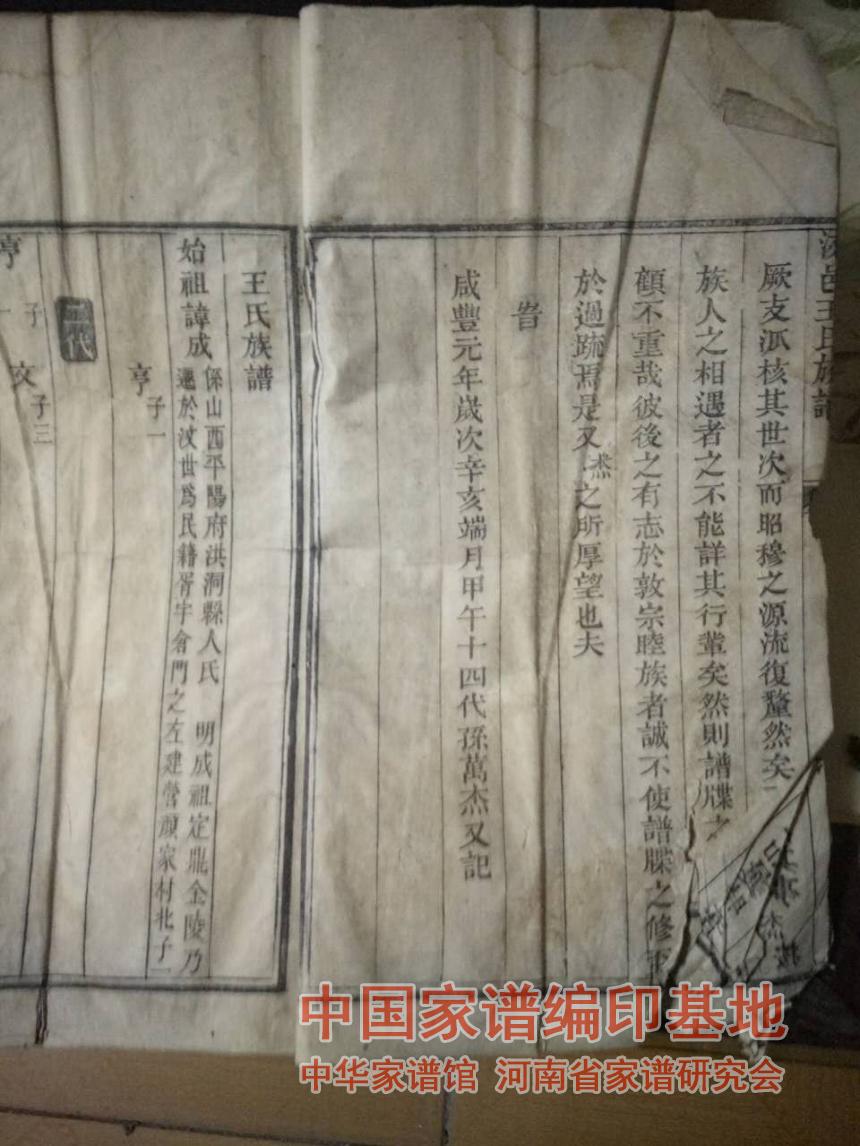 汶邑王氏族譜
厥支派核其世次而昭穆之源流復釐然矣
族人之相遇者之不能詳其行輩矣然則譜牒之
顧不重哉彼後之有志於敦宗睦族者誠不使譜牒之修
於過疏焉是又杰之所厚望也夫
旹
咸豐元年歲次辛亥端月甲午十四代孫萬杰又記
王氏族譜
始祖諱成
係山西平陽府洪洞縣人氏 明成祖定鼎金陵乃
遷於汶世爲民籍胥宇倉門之左建營顔家村北子一
亨 子一
二代
亨 子一
文 子三
中国家谱编印基地
中华家谱馆 河南省家谱研究会